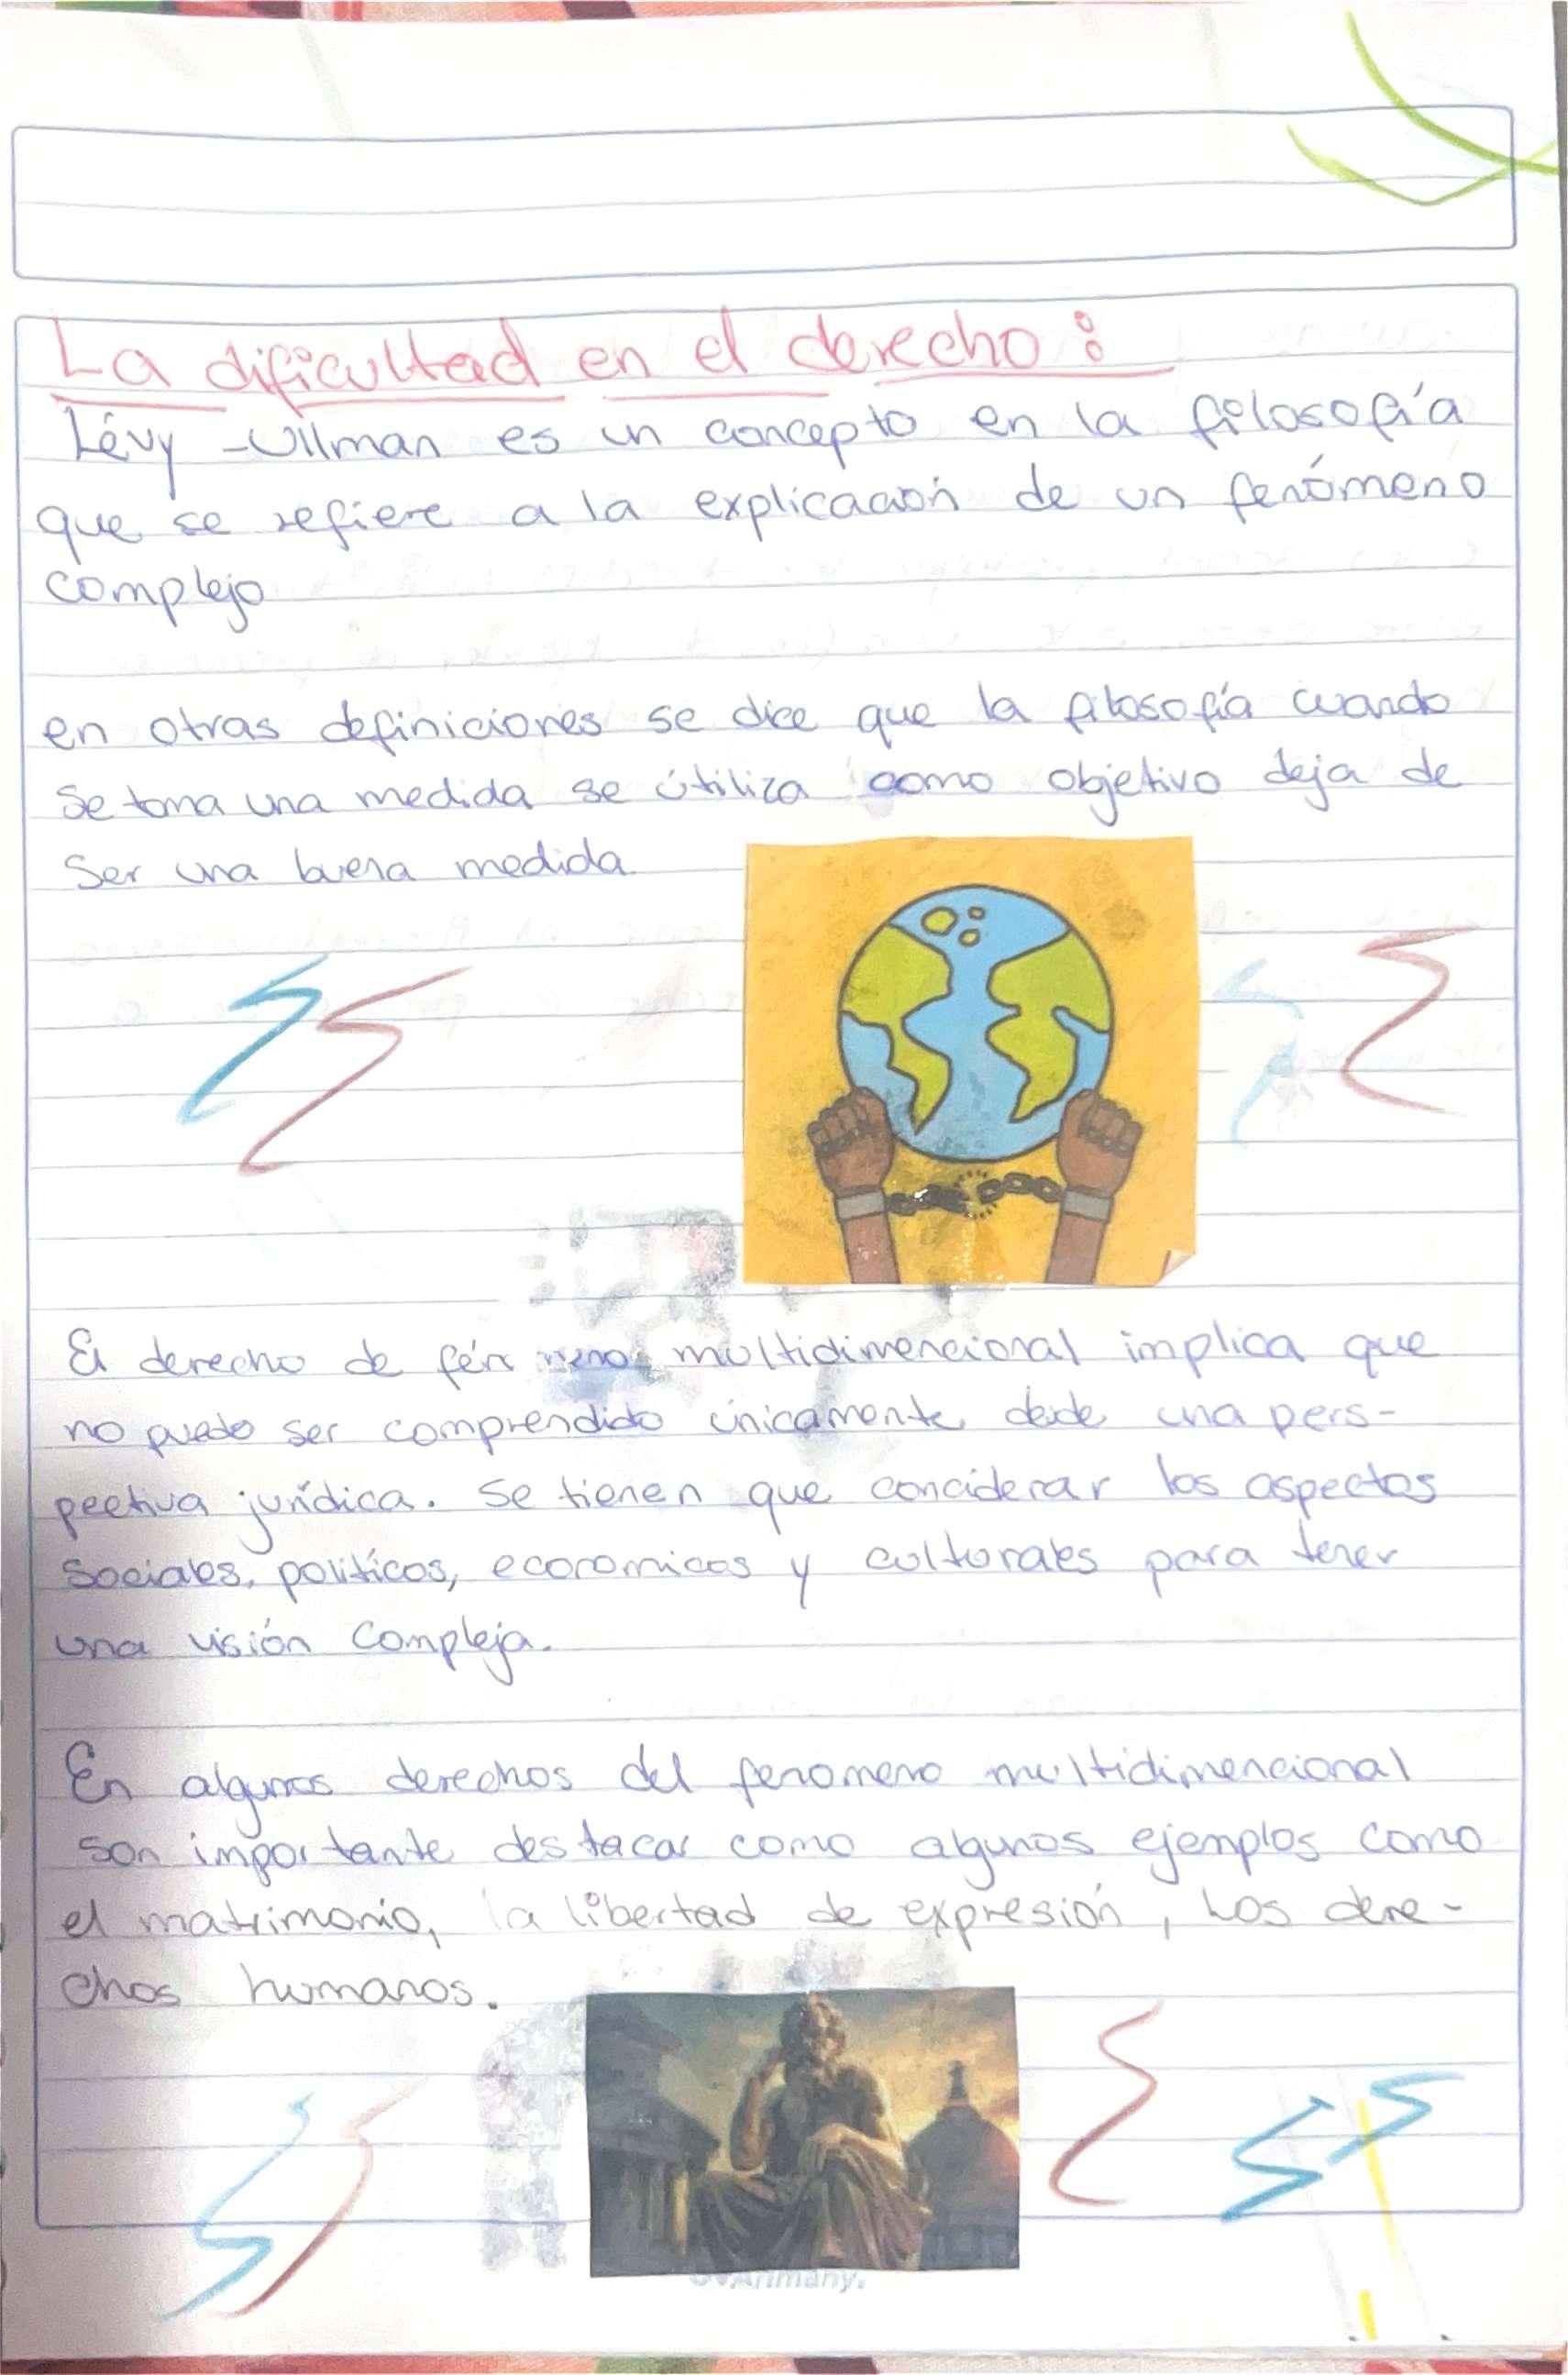 La dificultad en el derecho:
Lévy -Ullman es un concepto en la filosofía
que se refiere a la explicación de un fenómeno
complejo
en otras definiciones se dice que la filosofía cuando
se toma una medida se útiliza como objetivo deja de
ser una buena medida
El derecho de fenómeno multidimencional implica que
no puede ser comprendido únicamente desde una pers-
pectiva jurídica. Se tienen que conciderar los aspectos
sociales, políticos, economicos y culturales para tener
una visión compleja.
En algunos derechos del fenomeno multidimencional
son importante destacar como algunos ejemplos como
el matrimonio, la libertad de expresión, Los dere-
chos humanos.